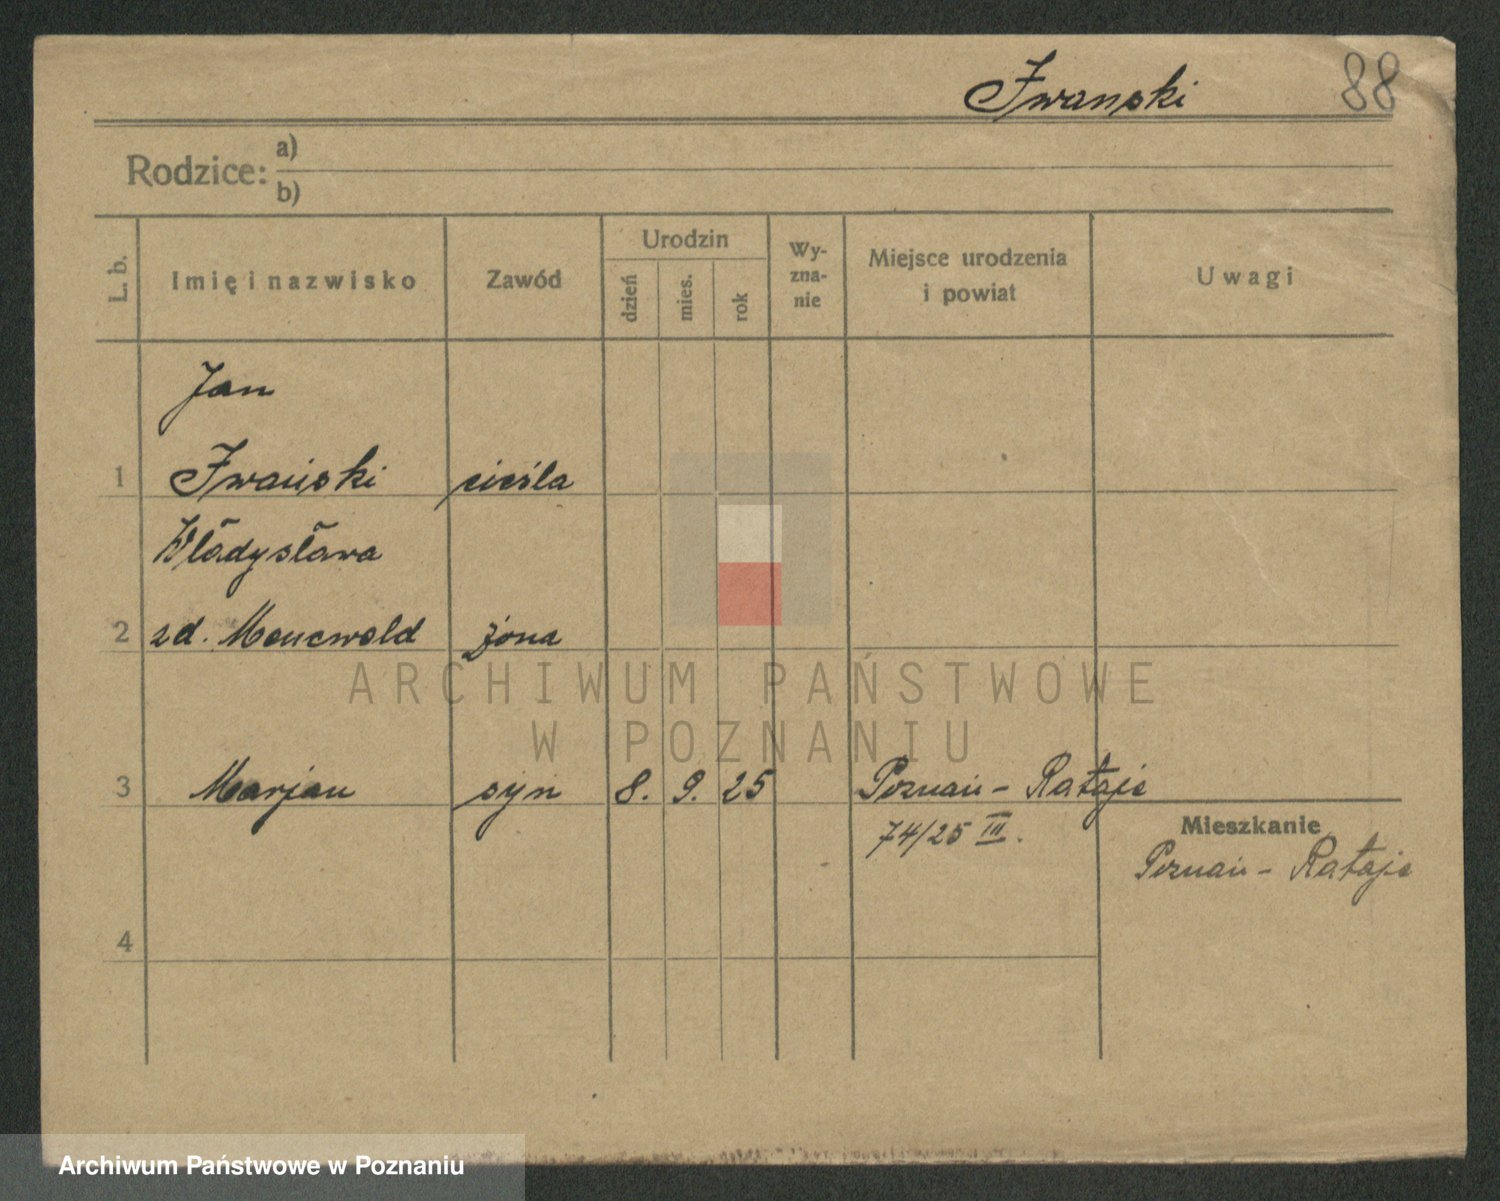 Iwanski 88
Rodzice: a)
b)
L. b. Imię i nazwisko Zawód Urodzin dzień mies. rok Wy-zna-nie Miejsce urodzenia i powiat Uwagi
Jan
1 Iwański cieśla
Władysława
2 zd. żona
ARCHIWUM PAŃSTWOWE
W POZNANIU
3 Marjan syn 8. 9. 25 Poznań - Rataje
74/25 III.
Mieszkanie
Poznań - Rataje
4
Archiwum Państwowe w Poznaniu